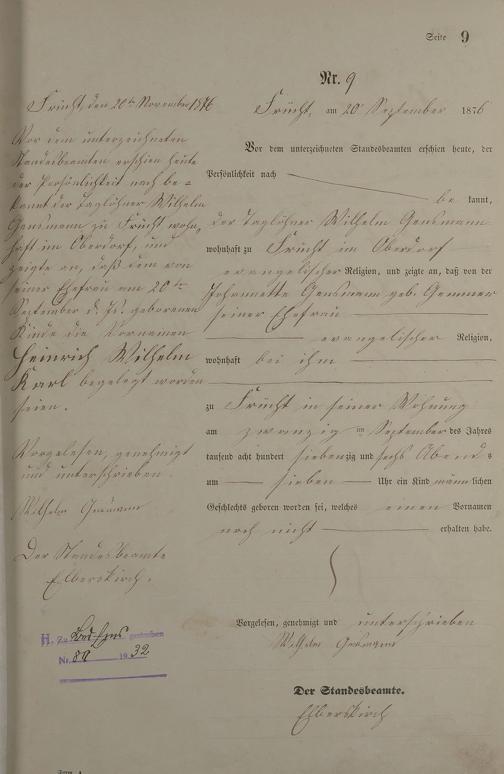 Seite 9
Nr. 9
Frücht, den 20ten November 1876
Vor dem unterzeichneten
Standesbeamten erschien heute
der Persönlichkeit nach be=
kannt der Taglöhner Wilhelm
zu Frücht wohn,
haft im Oberdorf, und
zeigte an, daß dem von
seiner Ehefrau am 20ten
September d. Js. geborenen
Kinde die Vornamen
Heinrich Wilhelm
Karl beigelegt worden
seien.
Vorgelesen, genehmigt
und unterschrieben.
Wilhelm
Der Standesbeamte
Elberskirch.
H. Zu gestorben
Nr. 1932
Frücht, am 20 September 1876
Vor dem unterzeichneten Standesbeamten erschien heute, der
Persönlichkeit nach
be kannt,
der Taglöhner Wilhelm
wohnhaft zu Frücht im Oberdorf
evangelischer Religion, und zeigte an, daß von der
Johannette geb.
seiner Ehefrau
evangelischer Religion,
wohnhaft bei ihm
zu Frücht in seiner Wohnung
am zwanzigten September des Jahres
tausend acht hundert siebenzig und sechs Abends
um sieben Uhr ein Kind männlichen
Geschlechts geboren worden sei, welches einen Vornamen
noch nicht erhalten habe.
Vorgelesen, genehmigt und unterschrieben
Wilhelm
Der Standesbeamte.
Elberskirch